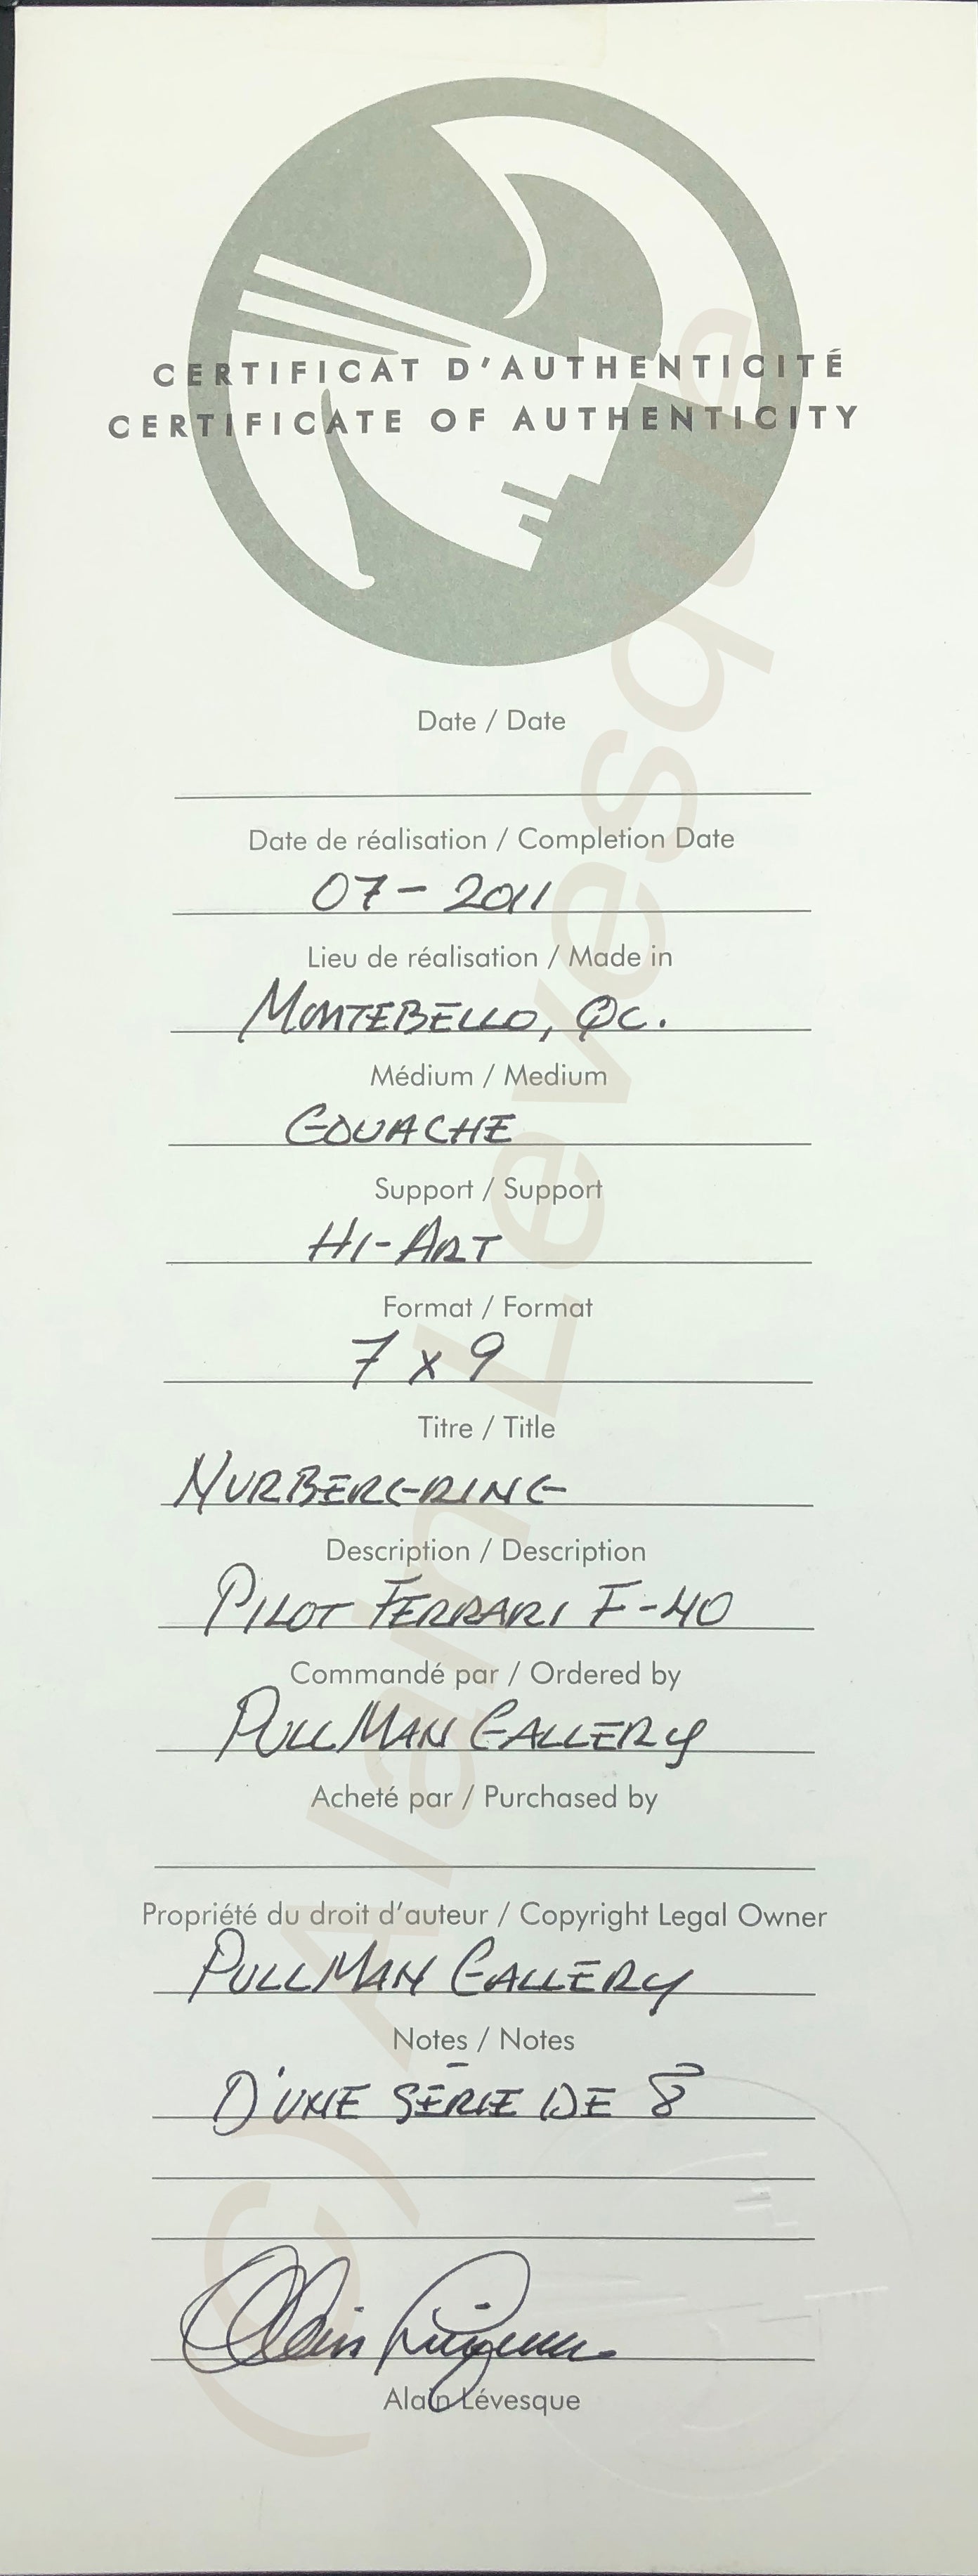 CERTIFICAT D'AUTHENTICITÉ
CERTIFICATE OF AUTHENTICITY
Date / Date
Date de réalisation / Completion Date
07 - 2011
Lieu de réalisation / Made in
MONTEBELLO, QC.
Médium / Medium
GOUACHE
Support / Support
HI-ART
Format / Format
7 x 9
Titre / Title
NURBERGRING
Description / Description
PILOT FERRARI F-40
Commandé par / Ordered by
PULLMAN GALLERY
Acheté par / Purchased by
Propriété du droit d'auteur / Copyright Legal Owner
PULLMAN GALLERY
Notes / Notes
D'UNE SÉRIE DE 8
Alain Lévesque
Alain Lévesque
(c) Alain Levesque